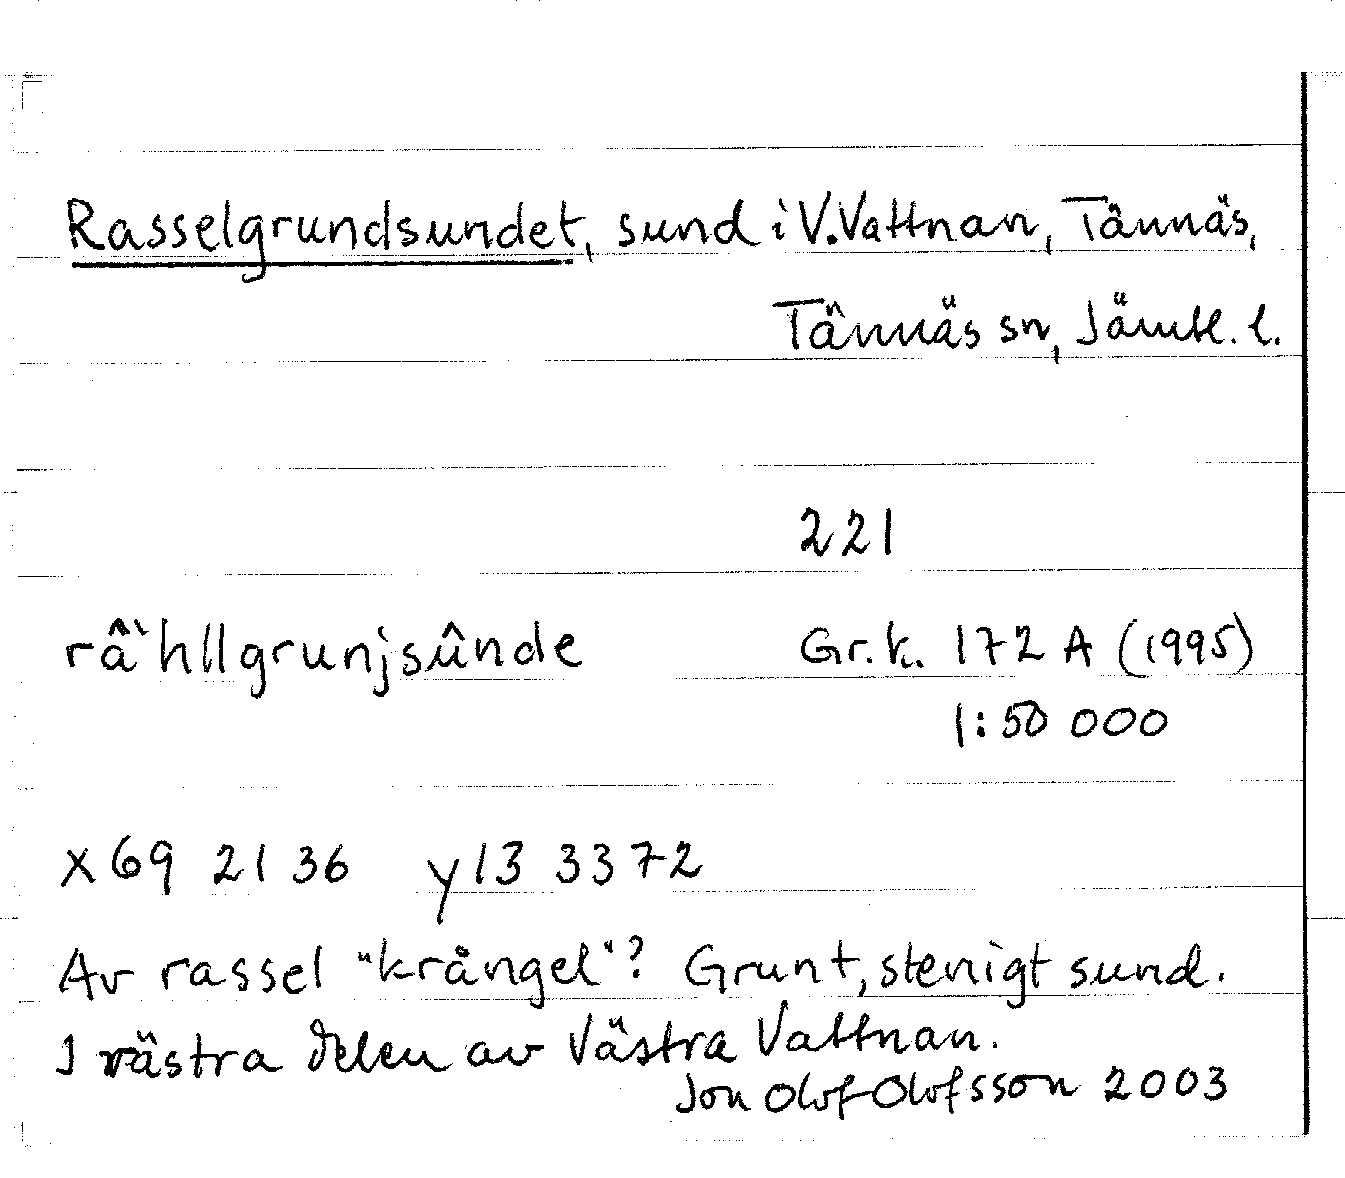 Rasselgrundsundet, sund i V.Vattnan, Tännäs,
Tännäs sn, Jämtl. l.
221
râ`hllgrunjsûnde Gr.k. 172 A (1995)
1:50 000
x69 21 36 y13 3372
Av rassel "krångel"? Grunt, stenigt sund.
I västra delen av Västra Vattnan.
Jon Olof Olofsson 2003